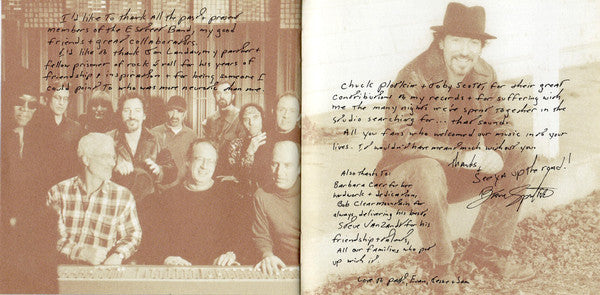 I'd like to thank all the past + present
members of the E Street Band, my good
friends + great collaborators.
I'd like to thank Jon Landau, my partner +
fellow prisoner of rock & roll for his years of
friendship + inspiration + for being someone I
could point to who was more neurotic than me.
Chuck Plotkin + Toby Scott for their great
contributions to my records + for suffering with
me the many nights we've spent together in the
studio searching for... that sound.
All you fans who welcomed our music into your
lives. It wouldn't have meant much without you.
Thanks,
See ya up the road!!
Also thanks to:
Barbara Carr for her
hardwork + dedication,
Bob Clearmountain for
always delivering his best,
Steve VanZandt for his
friendship + talents,
All our families who put
up with it.
Love to Patti, Evan, Jesse + Sam